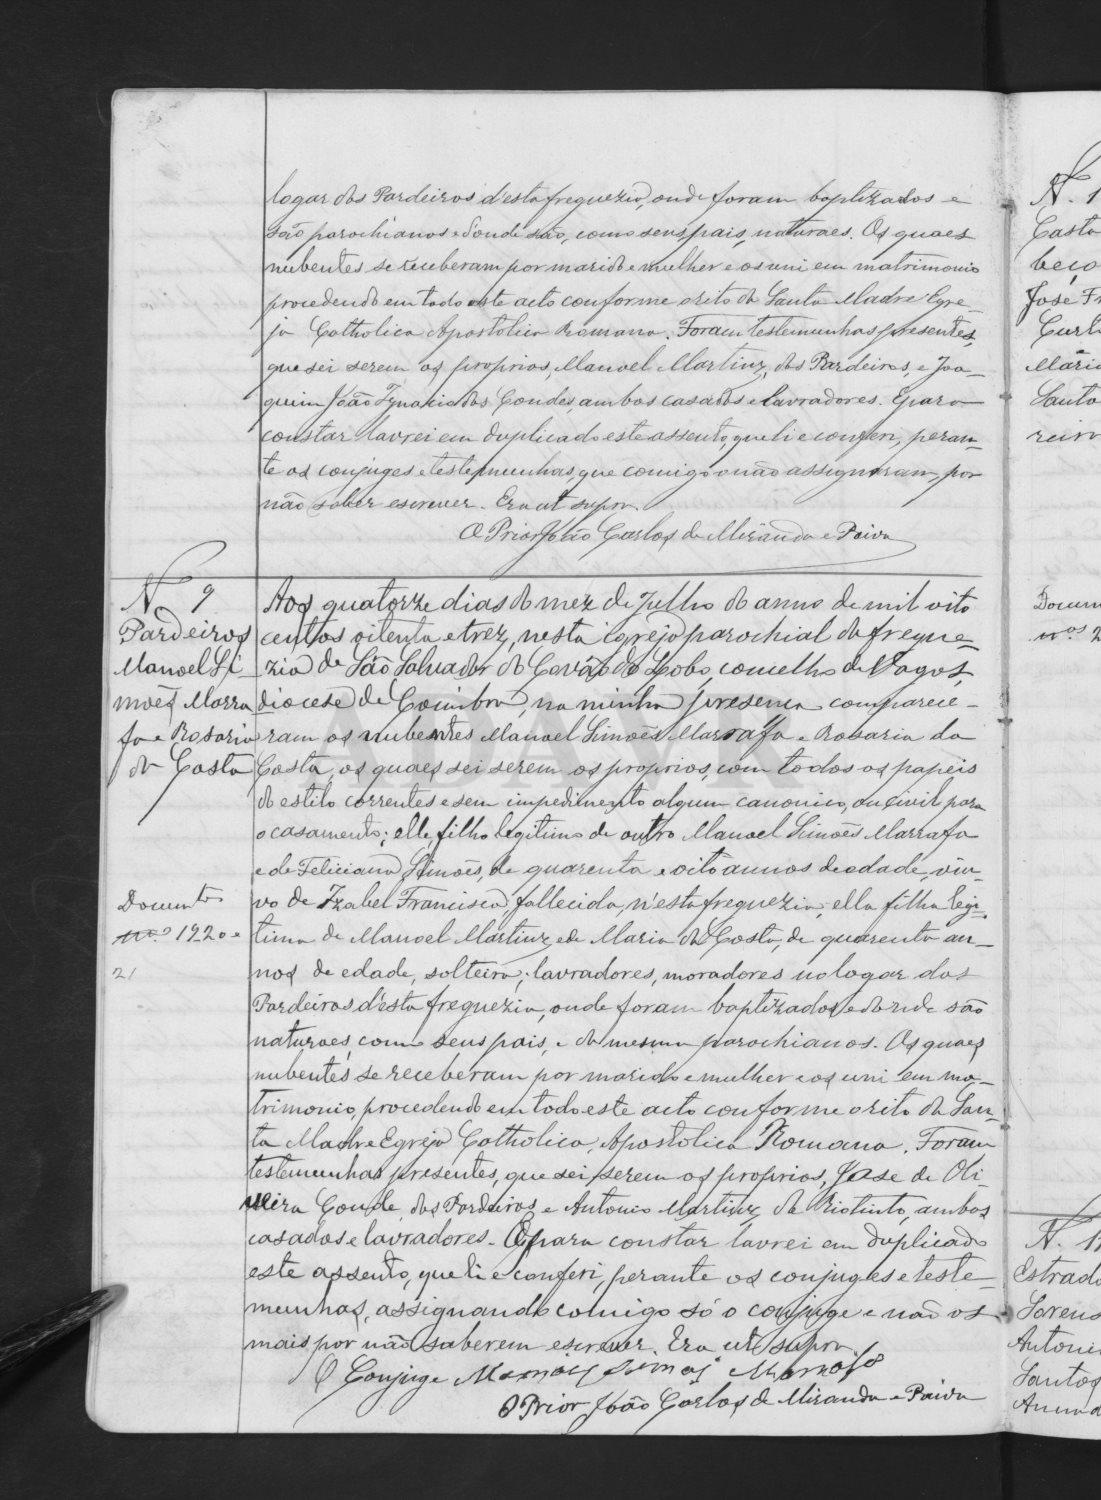 logar dos Pardeiros d'esta freguezia, onde foram baptizados e
são parochianos e d'onde são, como seus pais, naturaes. Os quaes
nubentes se receberam por marido e mulher e os uni em matrimonio
procedendo em todo este acto conforme o rito da Santa Madre Egre-
ja Catholica Apostolica Romana. Foram testemunhas presentes,
que sei serem os proprios, Manoel Martins, dos Pardeiros, e Joa-
quim João Ignacio dos Condes, ambos casados e lavradores. E para
constar lavrei em duplicado este assento, que li e conferi, peran-
te os conjuges e testemunhas, que comigo não assignaram, por
não saber escrever. Era ut supra.
O Prior João Carlos de Miranda e Paiva
N. 9
Pardeiros
Manoel Si-
mões Marra
fa e Rosaria
da Costa
Documentos
nos 19 20 e
21
Aos quatorze dias do mez de Julho do anno de mil oito
centos oitenta e trez, nesta Egreja parochial da fregue-
zia de São Salvador do Covão do Lobo, concelho de Vagos
diocese de Coimbra, na minha presença comparece-
ram os nubentes Manoel Simões Marrafa e Rosaria da
Costa, os quaes sei serem os proprios, com todos os papeis
do estilo correntes e sem impedimento algum canonico, ou civil para
o casamento; elle, filho legitimo de outro Manoel Simões Marrafa
e de Feliciana Simões, de quarenta e oito annos de edade, viu-
vo de Izabel Francisca, fallecida, n'esta freguezia; ella filha legi-
tima de Manoel Martins, e de Maria da Costa, de quarenta an-
nos de edade, solteira; lavradores, moradores no logar dos
Pardeiros d'esta freguezia, onde foram baptizados e donde são
naturaes, como seus pais, e da mesma parochianos. Os quaes
nubentes se receberam por marido e mulher e os uni em ma-
trimonio, procedendo em todo este acto conforme o rito da San-
ta Madre Egreja Catholica, Apostolica Romana. Foram
testemunhas presentes, que sei serem os proprios, Jose de Oli-
veira Conde, dos Pardeiros, e Antonio Martins, de Riotinto, ambos
casados e lavradores. E para constar lavrei em duplicado
este assento, que li e conferi, perante os conjuges e teste-
munhas, assignando comigo só o conjuge e não os
mais por não saberem escrever. Era ut supra.
O Conjuge Manoel Simõis Marrafa
O Prior João Carlos de Miranda e Paiva
N. 1
Costa
José Fr
Maria
Santo
Docum
nos 2
N. 11
Estrada
Antonio
Santos